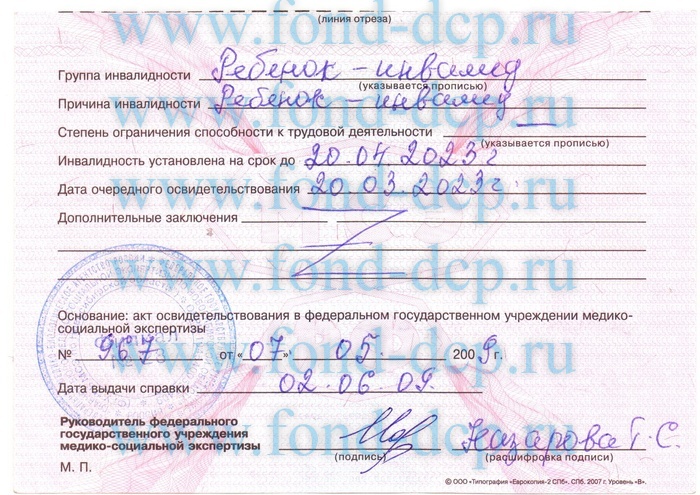 (линия отреза)
www.fond-dcp.ru
Группа инвалидности Ребенок-инвалид
(указывается прописью)
www.fond-dcp.ru
Причина инвалидности Ребенок-инвалид
Степень ограничения способности к трудовой деятельности —
(указывается прописью)
Инвалидность установлена на срок до 20.04.2023г
www.fond-dcp.ru
Дата очередного освидетельствования 20.03.2023г
Дополнительные заключения
www.fond-dcp.ru
Основание: акт освидетельствования в федеральном государственном учреждении медико-
социальной экспертизы
www.fond-dcp.ru
№ 967 от «07» 05. 2009г.
Дата выдачи справки 02.06.09.
www.fond-dcp.ru
Руководитель федерального
государственного учреждения
медико-социальной экспертизы Назарова Г.С.
(подпись) (расшифровка подписи)
М. П.
© ООО «Типография «Еврокопия-2 СПб». СПб. 2007 г. Уровень «В».